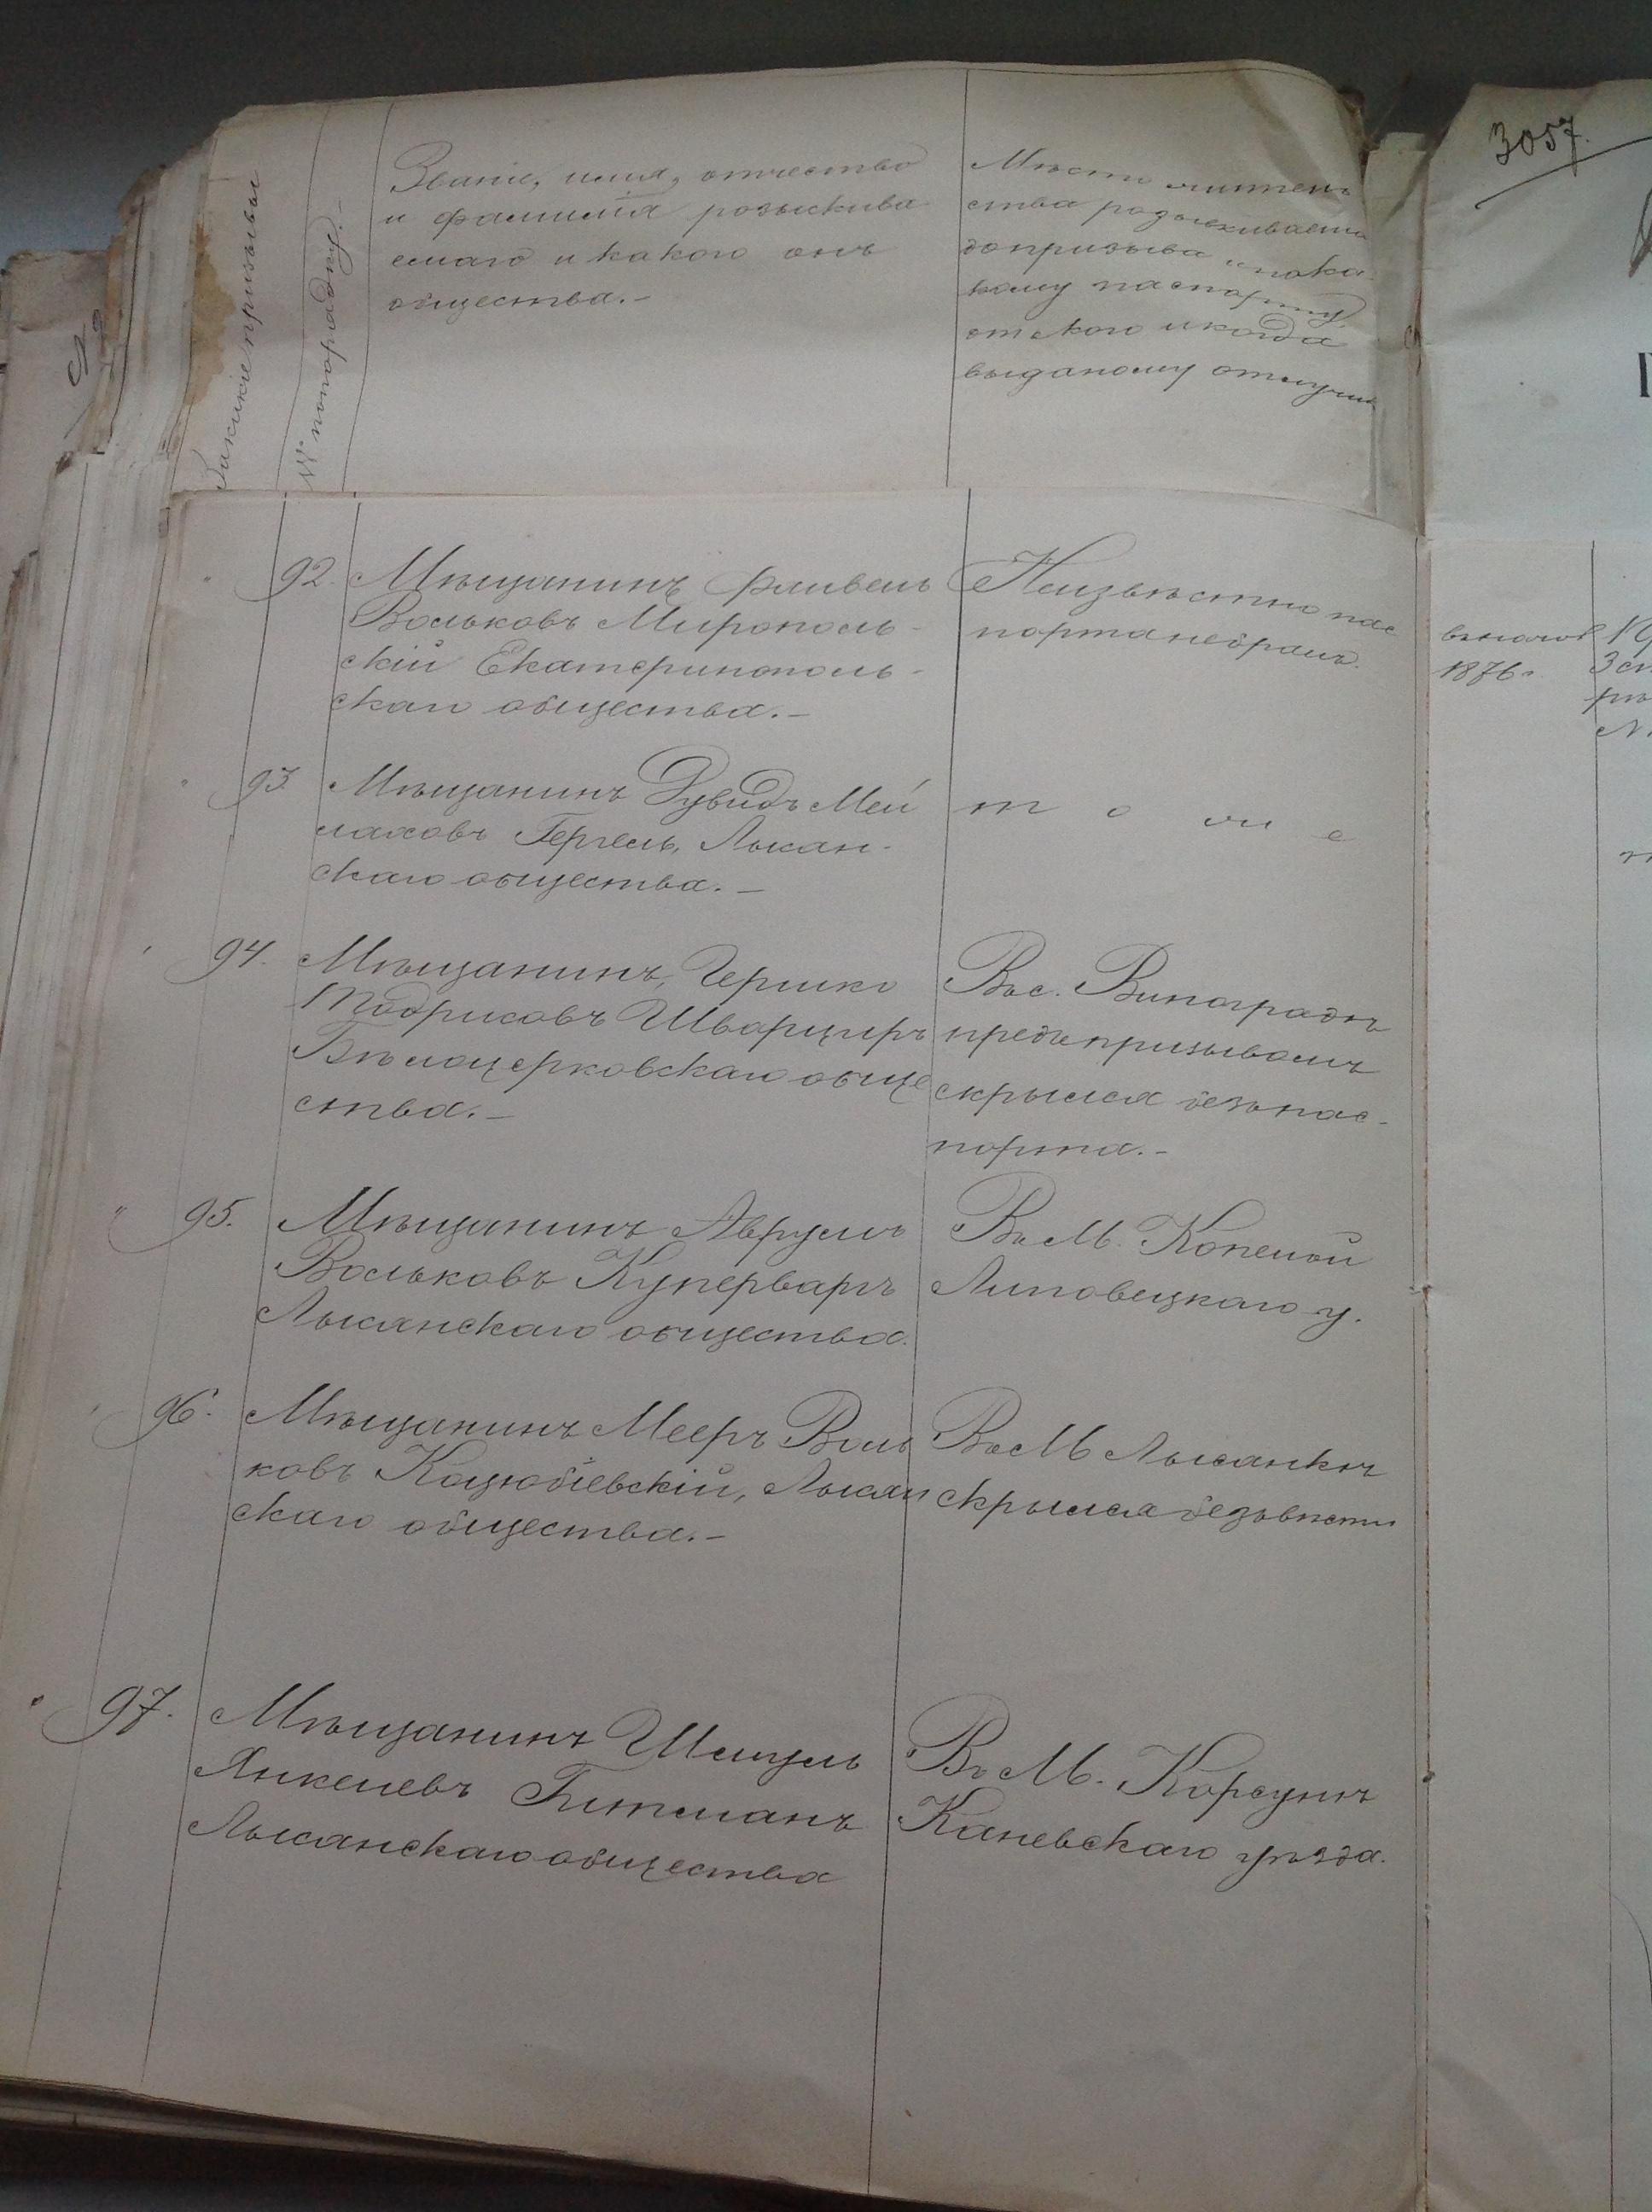 3057.
Званіе, имя, отчество
и фамилія розыскива
емаго и какого онъ
общества.-
Мѣсто житель
ства розыскиваема
до призыва и по ка
кому паспорту,
от кого и когда
выданому отлучил
Закакіе призывы
№№ по порядку.-
92. Мѣщанинъ Фаивель
Вольковъ Мирополь-
скій Екатеринополь-
скаго общества.-
Неизвѣстно пас
порта не бралъ.
въ началѣ
1876г.
93. Мѣщанинъ Рувидъ Мей
лаховъ Гергель, Лысян-
скаго общества.-
т о ж е
94. Мѣщанинъ, Гершко
Тодрисовъ Шварциръ
Бѣлоцерковскаго обще
ства.-
Въ с. Виноградѣ
предъ призывомъ
скрылся безъ пас-
порта.-
95. Мѣщанинъ Аврумъ
Вольковъ Купервагъ
Лысянскаго общества.
Въ М. Копеной
Липовецкаго у.
96. Мѣщанинъ Мееръ Воль
ковъ Коцюбіевскій, Лысян
скаго общества.-
Въ М Лысянкѣ
скрылся безъ вѣсти
97. Мѣщанинъ Шмуль
Янкелевъ Гитманъ
Лысянскаго общества
Въ М. Корсунѣ
Каневскаго уѣзда.